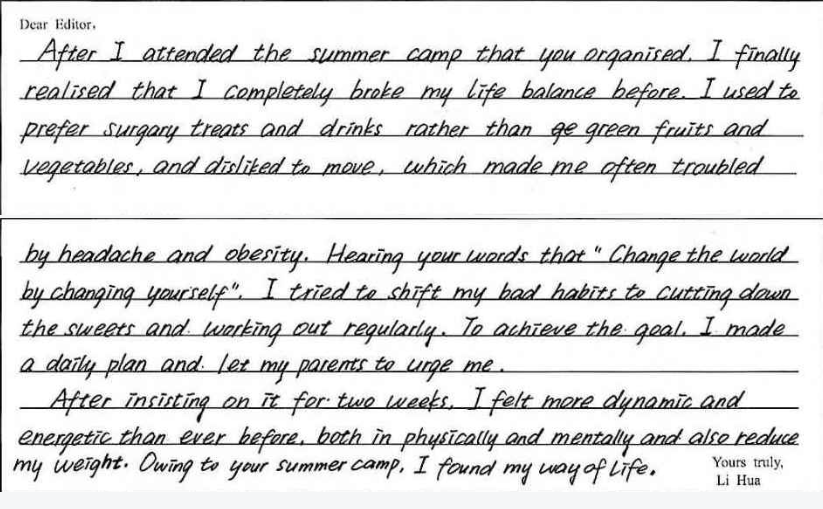 Dear Editor,
After I attended the summer camp that you organised, I finally
realised that I completely broke my life balance before. I used to
prefer surgary treats and drinks rather than ge green fruits and
vegetables, and disliked to move, which made me often troubled
by headache and obesity. Hearing your words that "Change the world
by changing yourself". I tried to shift my bad habits to cutting down
the sweets and working out regularly. To achieve the goal, I made
a daily plan and let my parents to urge me.
After insisting on it for two weeks, I felt more dynamic and
energetic than ever before, both in physically and mentally and also reduce
my weight. Owing to your summer camp, I found my way of life.
Yours truly,
Li Hua